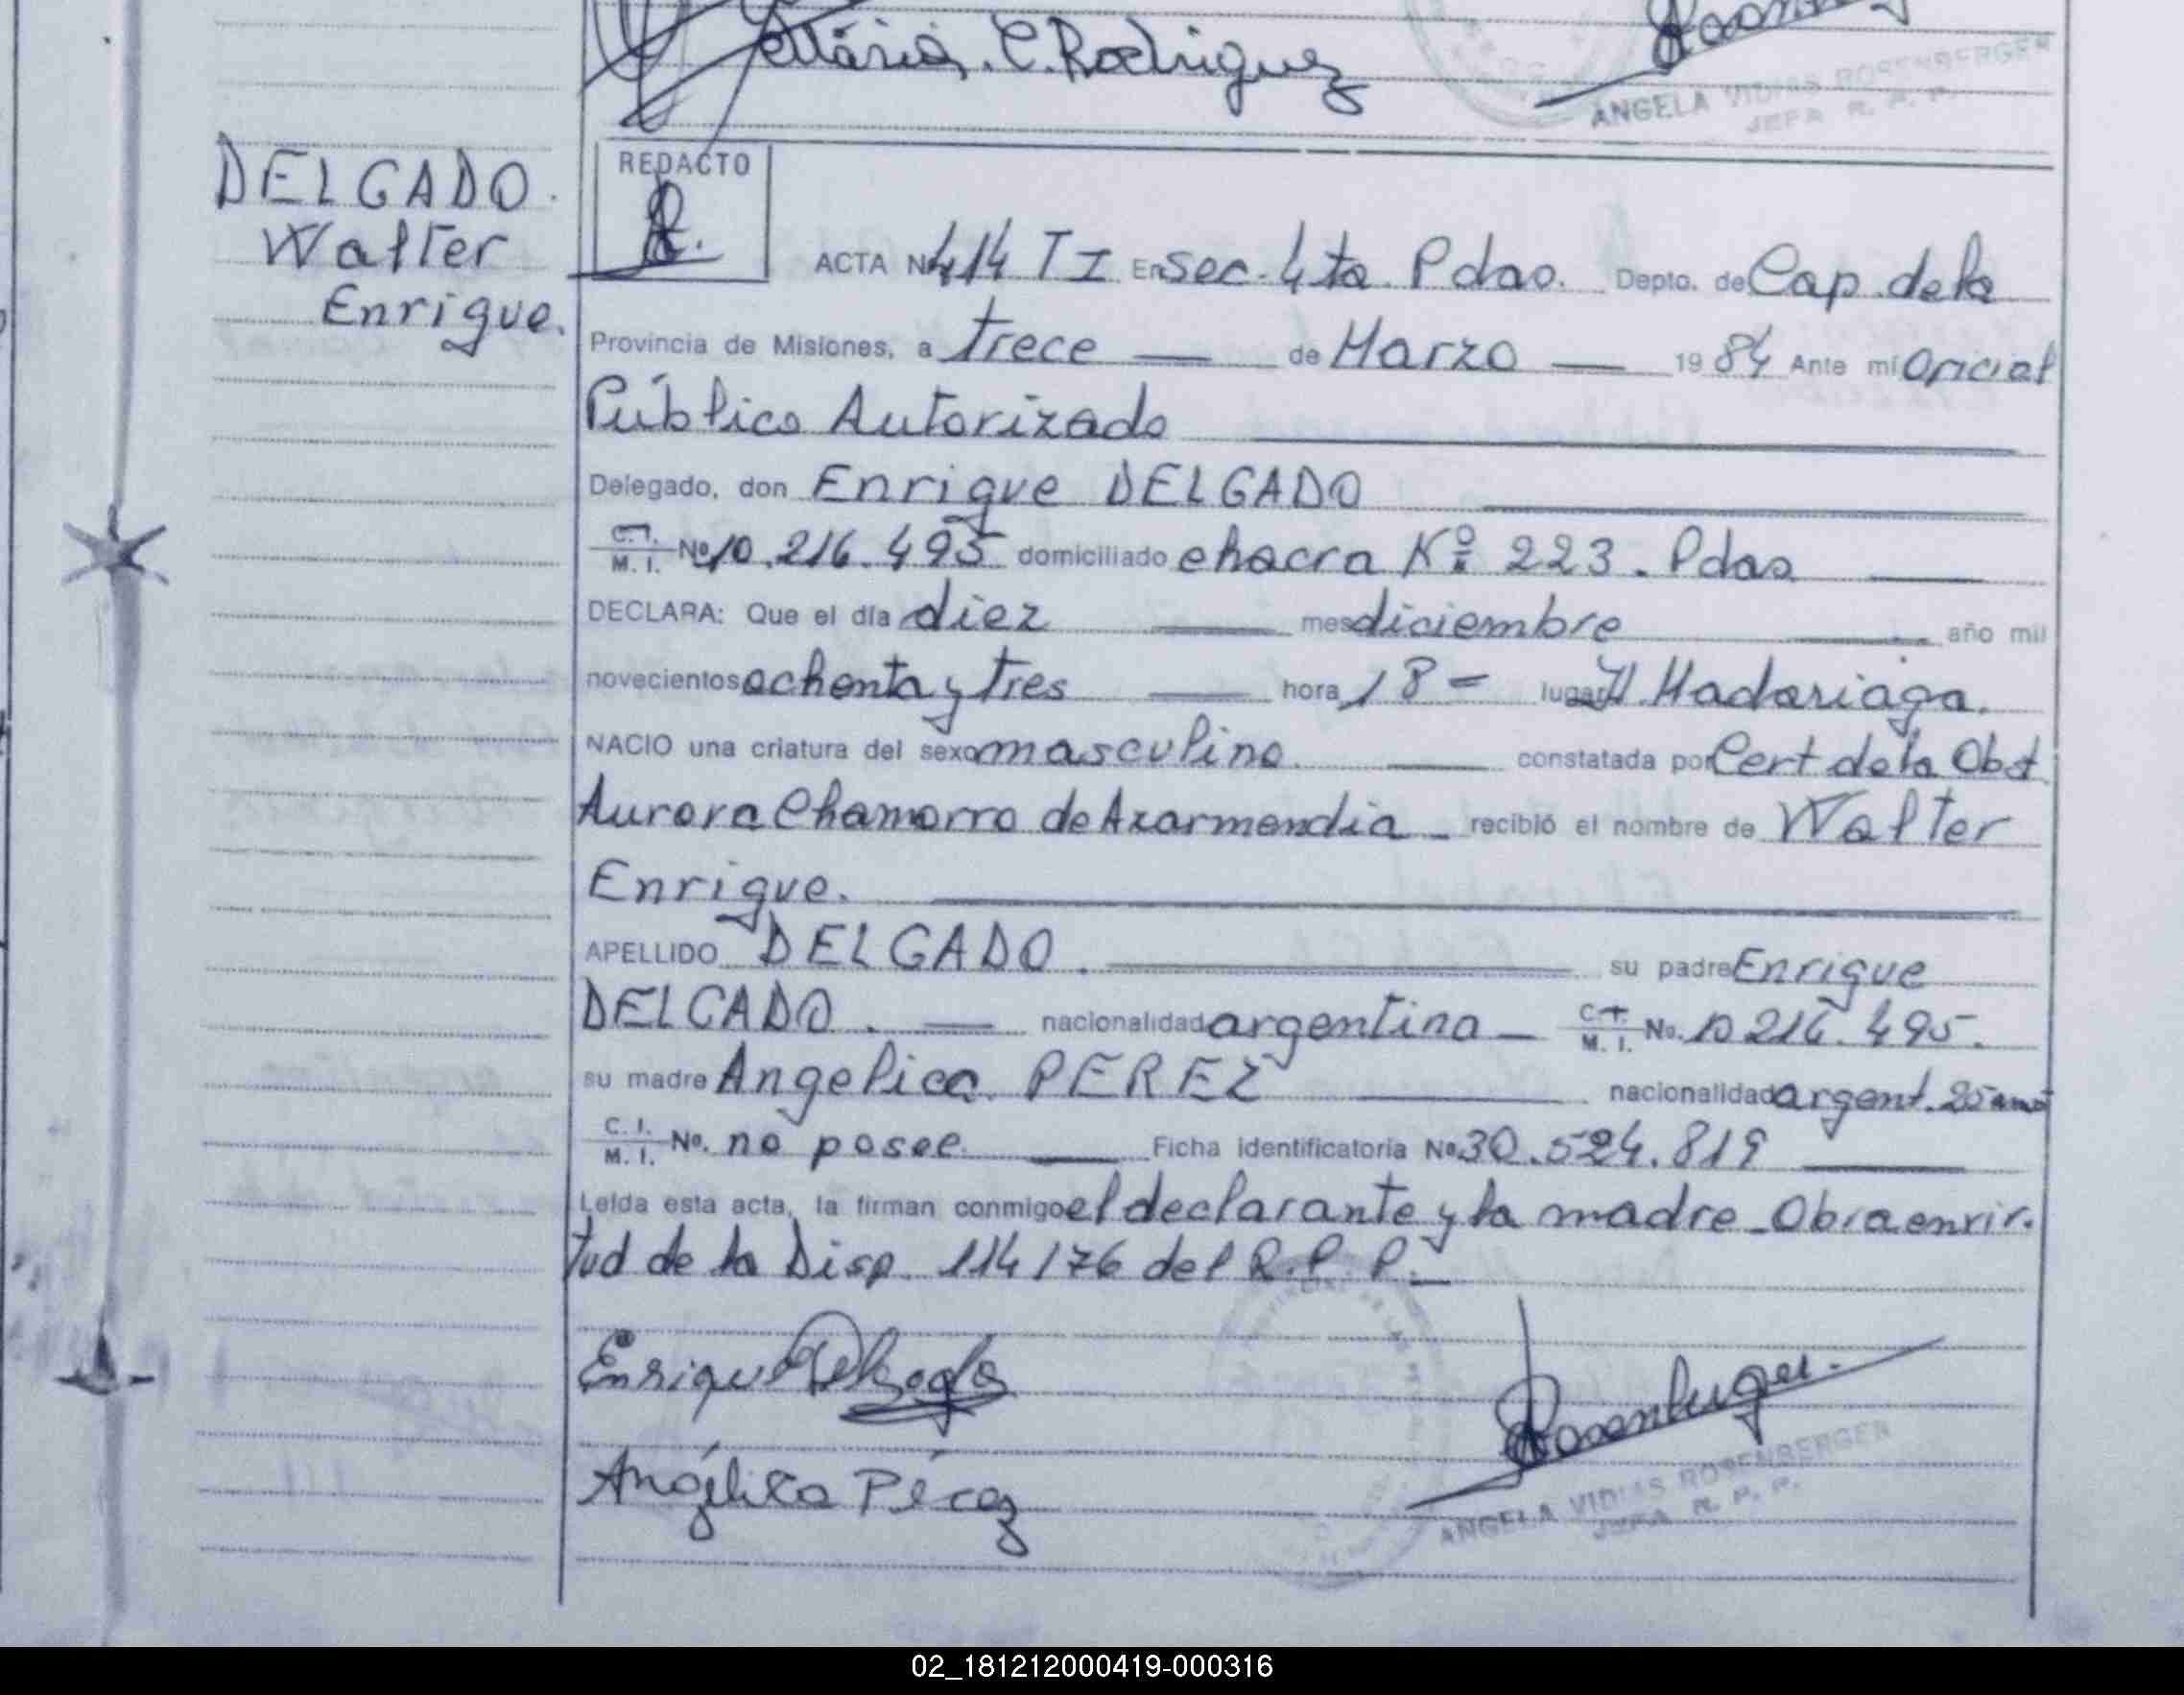 María. C. Rodriguez
ANGELA VIDIAS ROSENBERGER
JEFA R. P. P.
DELGADO.
Walter
Enrique.
REDACTO
ACTA Nº 414 T I En sec. 4ta. Pdas. Depto. de Cap. de la
Provincia de Misiones, a trece — de Marzo — 1984 Ante mí Oficial
Público Autorizado
Delegado, don Enrique DELGADO
C.I. M. I. Nº 10.216.495 domiciliado chacra Nº 223. Pdas
DECLARA: Que el día diez — mes diciembre — año mil
novecientos ochenta y tres — hora 18 = lugar H. Madariaga.
NACIO una criatura del sexo masculino. — constatada por Cert de la Obst
Aurora Chamorro de Azarmendia - recibió el nombre de Walter
Enrique.
APELLIDO DELGADO. — su padre Enrique
DELGADO. — nacionalidad argentina — C.I. M. I. No. 10 216. 495.
su madre Angelica PEREZ — nacionalidad argent. 25 años
C. I. M. I. No. no posee — Ficha identificatoria No 30.524.819
Leída esta acta, la firman conmigo el declarante y la madre - Obra en vir.
tud de la Disp. 114/76 del R. P. P. -
Enrique Delgado
Rosenberger
Angélica Pérez
ANGELA VIDIAS ROSENBERGER
JEFA R. P. P.
02_181212000419-000316